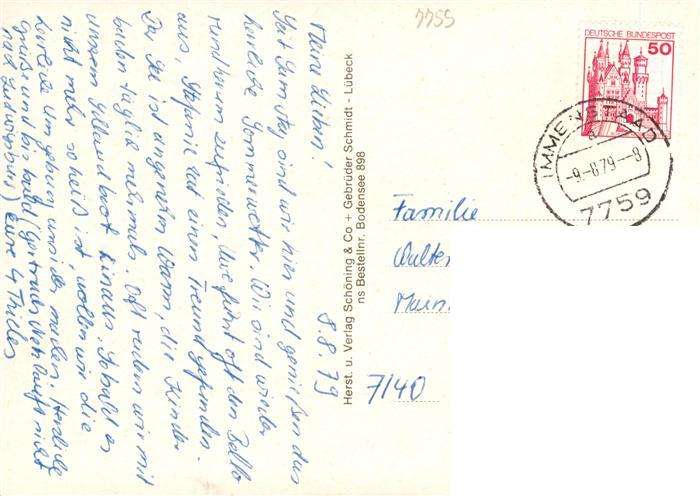 7755
DEUTSCHE BUNDESPOST
50
IMMENSTAAD
a
-9.-8.79--8
7759
8.8.79
Meine Lieben!
Seit Samstag sind wir hier und genießen das
herrliche Sommerwetter. Wir sind wieder
rundherum zufrieden. Uwe fährt oft den Balkon
aus, Stefanie hat einen Freund gefunden.
Der See ist angenehm warm, die Kinder
baden täglich mehrmals. Oft rudern wir mit
unserem Gummiboot hinaus. Sobald es
nicht mehr so heiß ist, wollen wir die
herrliche Umgebung unsicher machen. Herzliche
Grüße und bis bald (Gertruds Netz läuft nicht
nach Ludwigsburg) Eure 4 Thieles
Herst. u. Verlag Schöning & Co + Gebrüder Schmidt - Lübeck
ns Bestellnr. Bodensee 898
Familie
Walter
7140